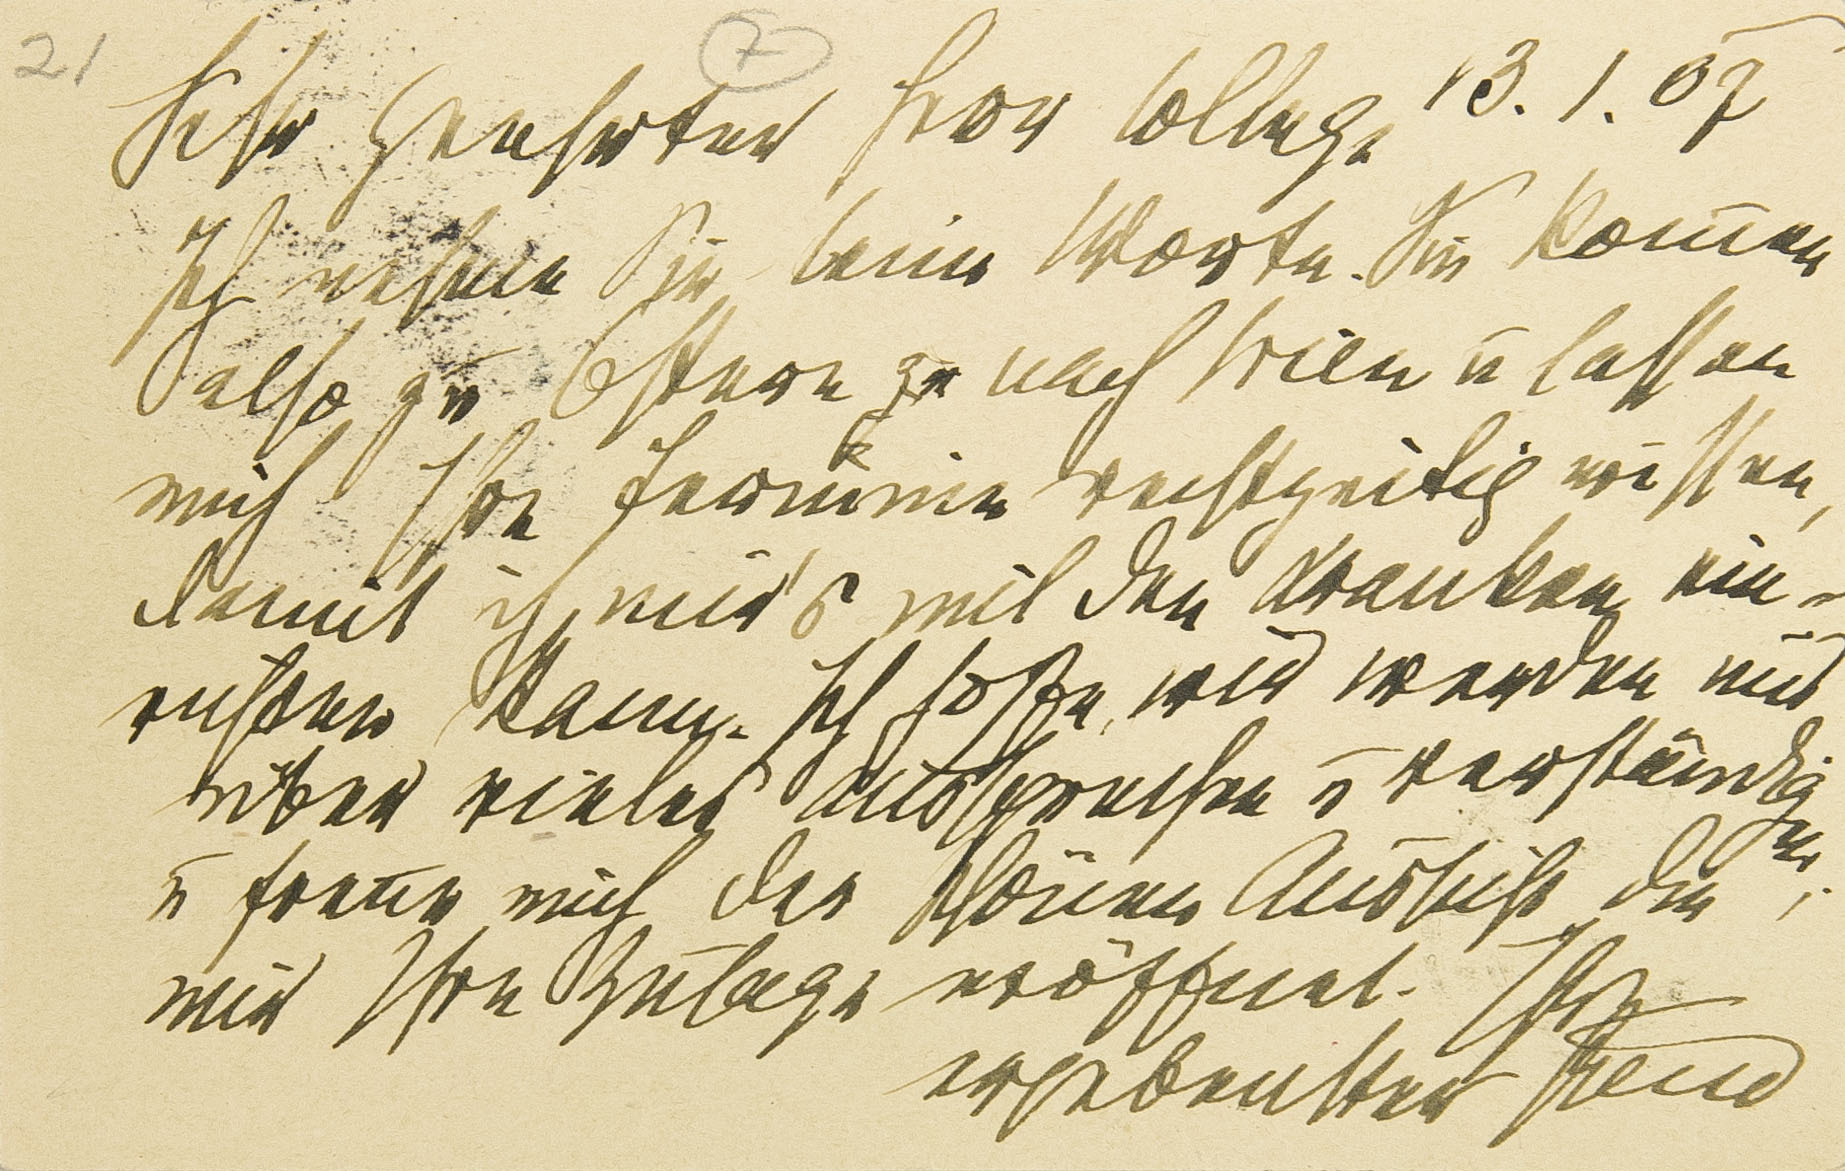 21
7
13. 1. 07
Sehr geehrter Herr College
Ich nehme Sie beim Worte. Sie kom̄en
also zu Ostern nach Wien u lassen
mich Ihre Termine rechtzeitig wissen,
damit ich mir's mit den Kranken ein-
richten kann. Ich hoffe, wir werden uns
über vieles aussprechen u verständigen,
u freue mich der schönen Aussicht die
mir Ihre Zusage eröffnet. Ihr
ergebenster Freud